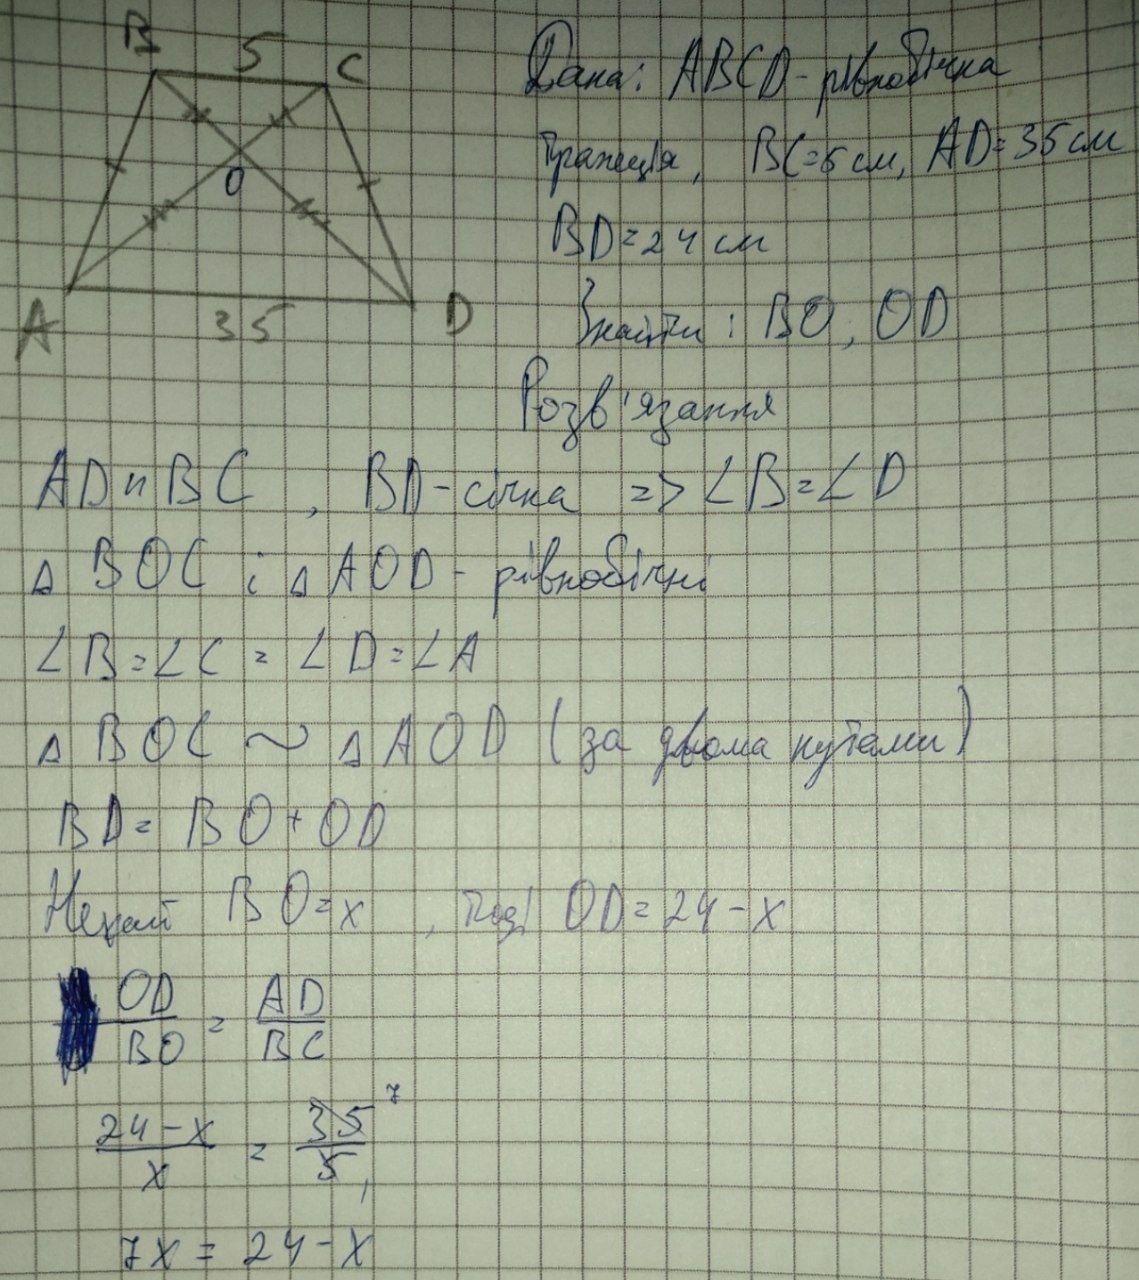 B 5 C
O
A 35 D
Дано: ABCD - рівнобічна
трапеція, BC=5 см, AD=35 см
BD=24 см
Знайти: BO, OD
Розв'язання
AD ∥ BC, BD - січна => ∠B=∠D
△ BOC і △ AOD - рівнобічні
∠B=∠C=∠D=∠A
△ BOC ~ △ AOD (за двома кутами)
BD = BO + OD
Нехай BO=x, тоді OD=24-x
OD/BO = AD/BC
24-x/x = 35/5, 7
7x = 24-x